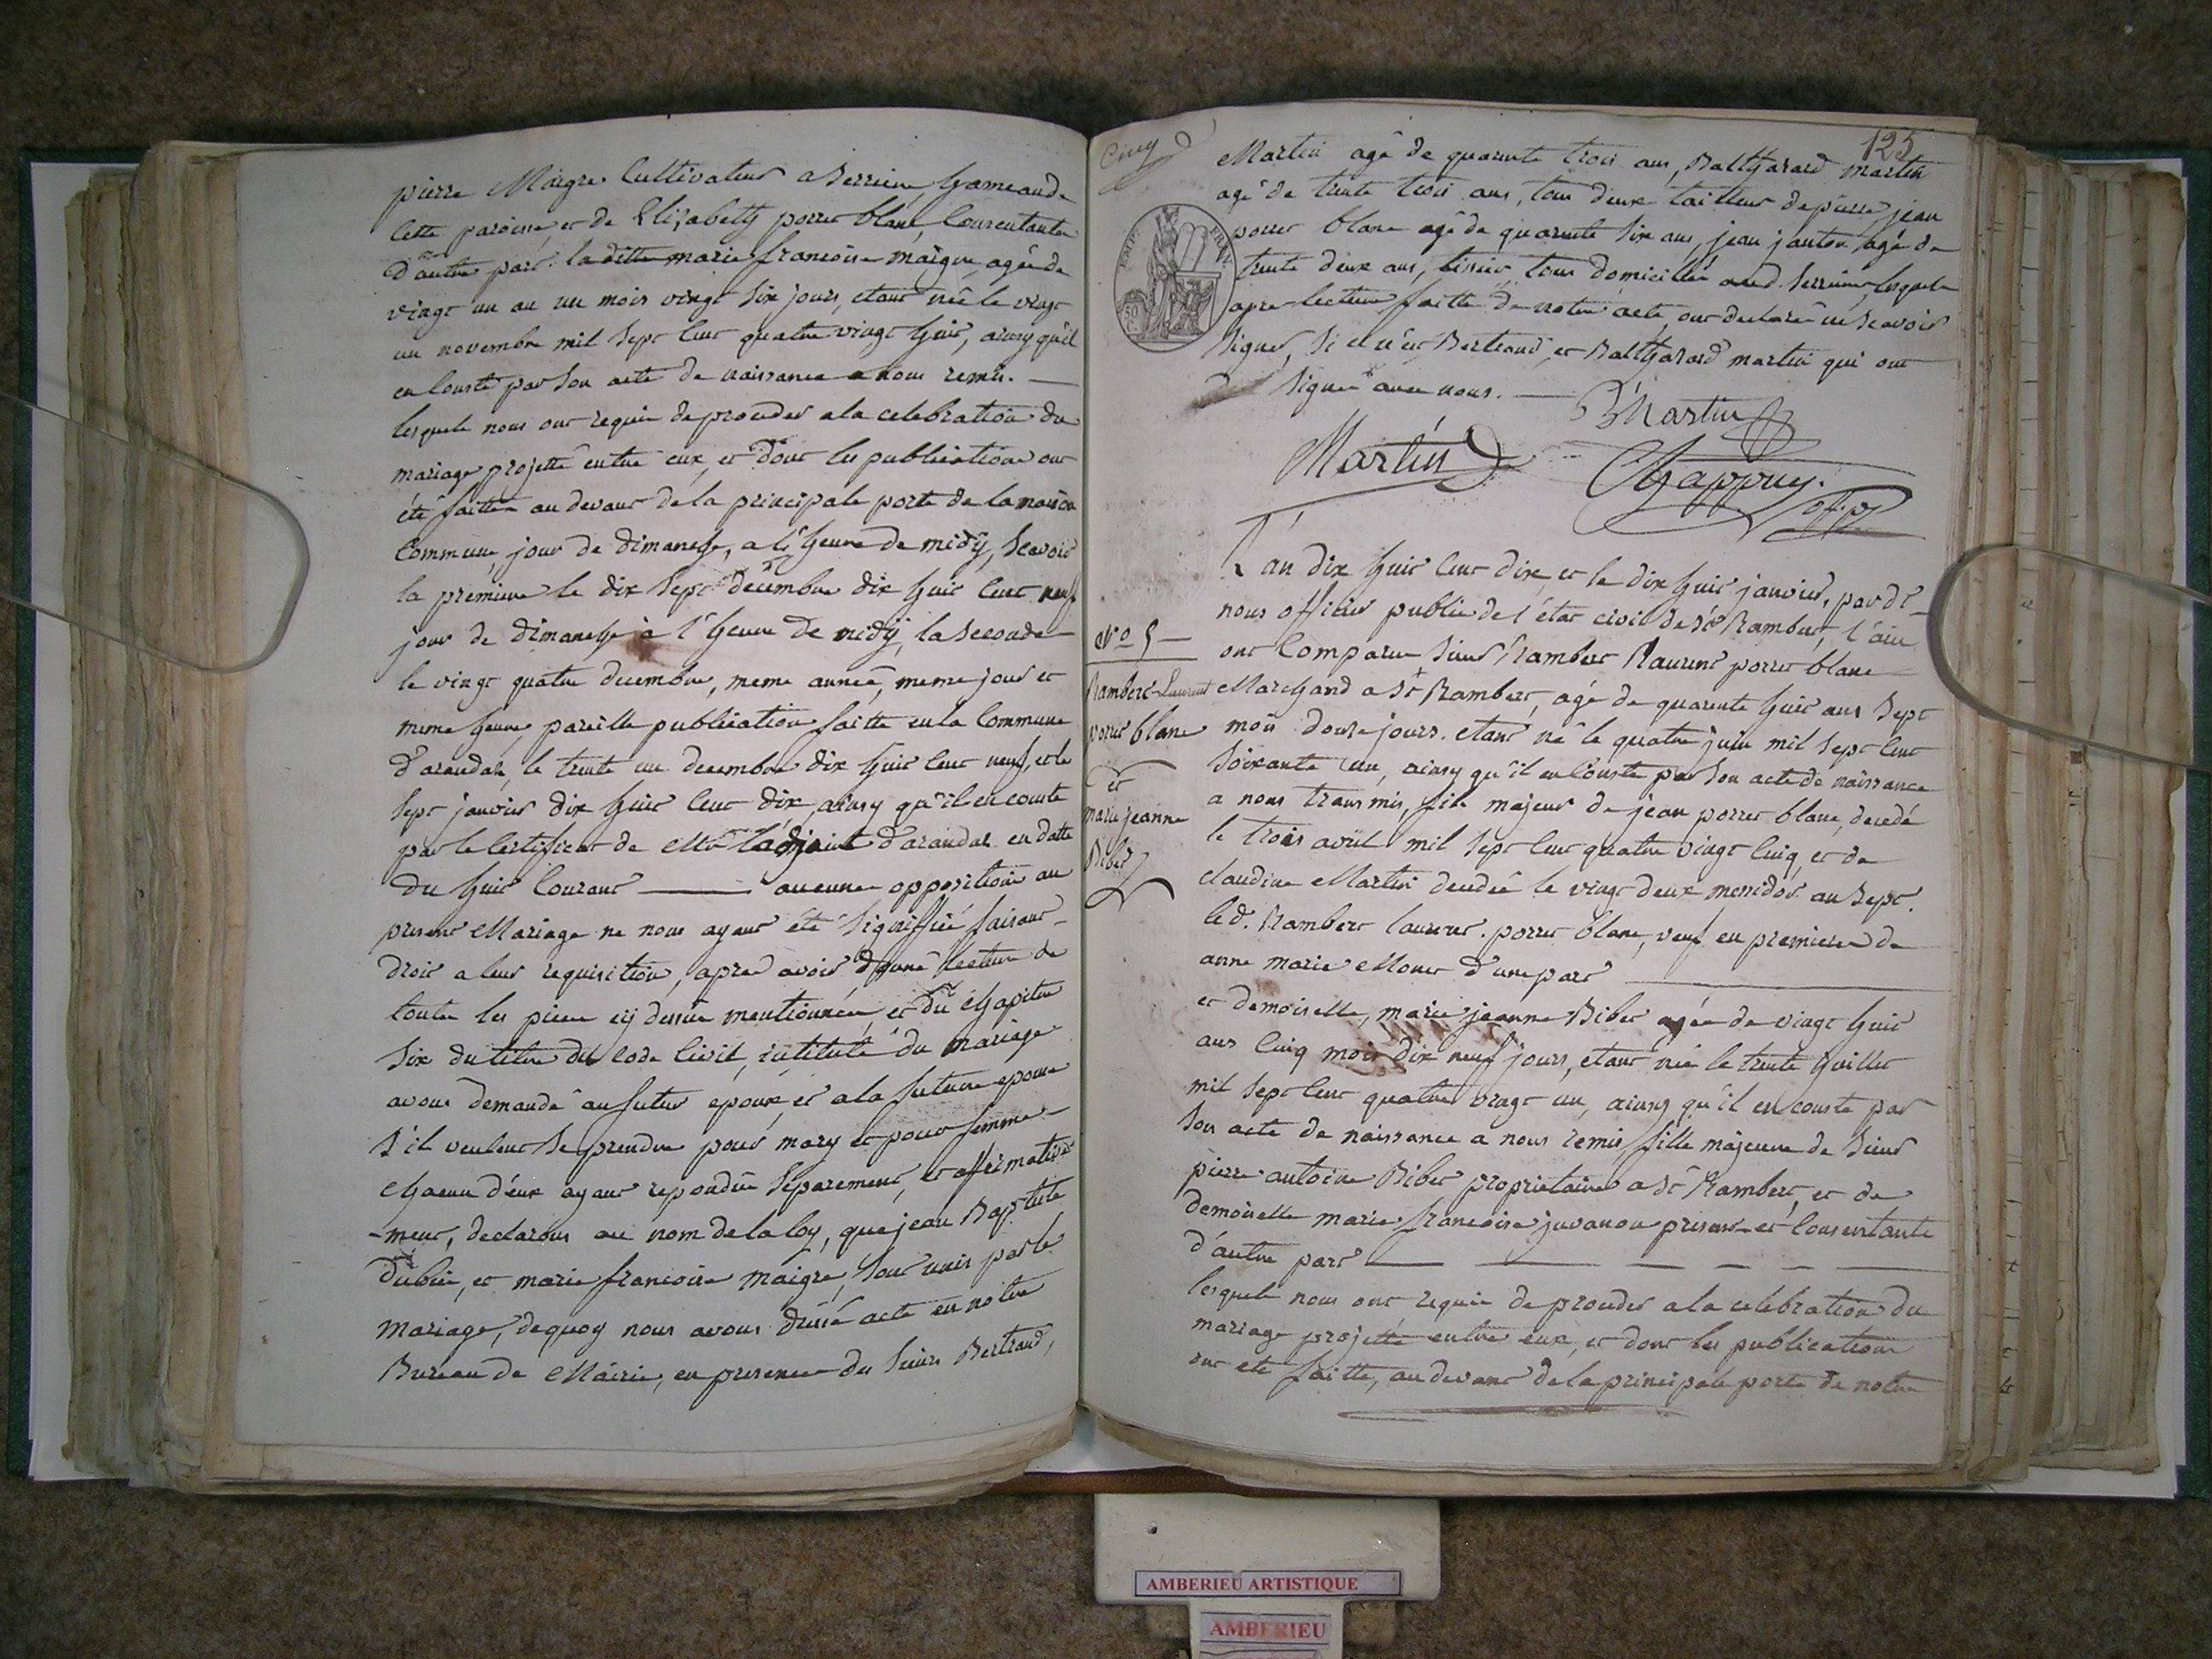 pierre Maigre Cultivateur a Serriere hameau de
cette paroisse, et de Elizabeth porret blanc, Consentante
d'autre part. la ditte marie francoise maigre, agée de
vingt un an un mois vingt six jours, etant née le vingt
un novembre mil sept cent quatre vingt huit, ainsy qu'il
en conste par son acte de naissance a nous remis. —
lesquels nous ont requis de proceder a la celebration du
mariage projetté entre eux, et dont les publications ont
été faittes au devant de la principale porte de la maison
Commune, jour de dimanche, a l'heure de midÿ, scavoir
la premiere le dix sept decembre dix huit cent neuf
jour de dimanche à l'heure de midÿ, la seconde
le vingt quatre decembre, meme année, meme jour et
meme heure, pareille publication faitte en la Commune
d'arandas, le trente un decembre dix huit cent neuf, et le
sept janvier dix huit cent dix, ainsy qu'il en conste
par le Certificat de Mr l'adjoint d'arandas en datte
du huit Courant ——— aucune opposition au
present Mariage ne nous ayant été signiffiée faisant
droit a leur requisition, apres avoir donné lecture de
toutes les pieces cÿ dessus mentionnées, et du chapitre
six du titre du code Civil, intitulé du mariage
avons demandé au futur epoux, et a la future epouse
s'il veulent se prendre pour mary et pour femme —
chacun d'eux ayant repondu séparement, et affirmative
-ment, declarons au nom de la loy, que jean Baptiste
dubie, et marie francoise maigre, sont unis par le
mariage, de quoy nous avons dressé acte en notre
Bureau de Mairie, en presence du sieurs Bertrand,
125
Cinq
Martin agé de quarante trois ans, Balthazard martin
agé de trente trois ans, tous deux tailleur de pierre, jean
porret blanc agé de quarante six ans, jean janton agé de
trente deux ans, tissier, tous domicilliés aud. Serriere, lesquels
apres lecture faitte de notre acte, ont declaré ne scavoir
signer, si ce n'est Bertrand, et Balthazard martin qui ont
signé avec nous. —
BMartin
Martin
Chappuy.
off. p.
L'an dix huit cent dix, et le dix huit janvier, par dt
nous officier public de l'état civil de st Rambert, l'ain
N° 5 —
ont Comparu sieur Rambert Laurent porret blanc
Rambert-Laurent
Marchand a St Rambert, agé de quarente huit ans sept
porret blanc
mois douze jours. etant né le quatre juin mil sept cent
soixante un, ainsy qu'il en conste par son acte de naissance
et
a nous transmis, fils majeur de jean porret blanc, decedé
marie jeanne
le trois avril mil sept cent quatre vingt cinq, et de
Bibet
claudine Martin decedée le vingt deux messidor an sept.
led. Rambert laurent. porret blanc, veuf en premieres de
anne marie Monet d'une part ———
et demoiselle, marie jeanne Bibet agée de vingt huit
ans cinq mois dix neuf jours, etant née le trente juillet
mil sept cent quatre vingt un, ainsy qu'il en conste par
son acte de naissance a nous remis, fille majeure de sieur
pierre antoine Bibet proprietaire a St Rambert, et de
demoiselle marie francoise juvanon present et Consentante
d'autre part ———
lesquels nous ont requis de proceder a la celebration du
mariage projetté entre eux, et dont les publications
ont été faitte, au devant de la principale porte de notre
EMP. FRAN.
50 C.
AMBERIEU ARTISTIQUE
AMBERIEU